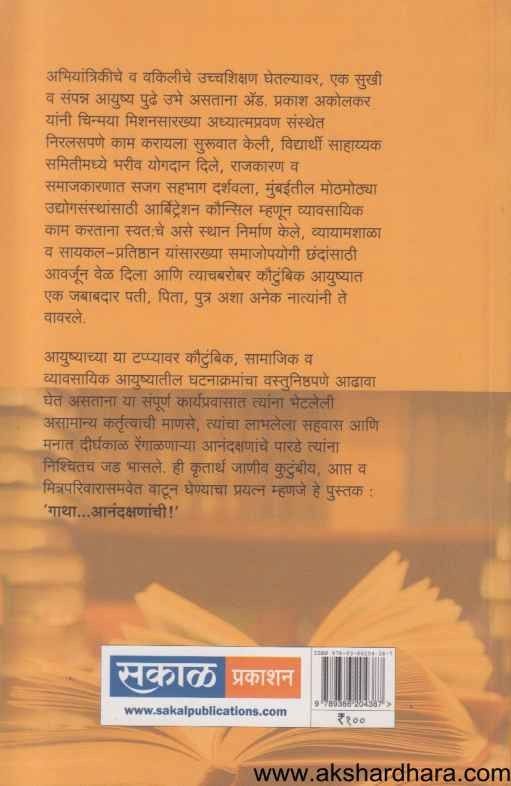 अभियांत्रिकीचे व वकिलीचे उच्चशिक्षण घेतल्यावर, एक सुखी
व संपन्न आयुष्य पुढे उभे असताना ॲड. प्रकाश अकोलकर
यांनी चिन्मया मिशनसारख्या अध्यात्मप्रवण संस्थेत
निरलसपणे काम करायला सुरूवात केली, विद्यार्थी साहाय्यक
समितीमध्ये भरीव योगदान दिले, राजकारण व
समाजकारणात सजग सहभाग दर्शवला, मुंबईतील मोठमोठ्या
उद्योगसंस्थांसाठी आर्बिट्रेशन कौन्सिल म्हणून व्यावसायिक
काम करताना स्वत:चे असे स्थान निर्माण केले, व्यायामशाळा
व सायकल–प्रतिष्ठान यांसारख्या समाजोपयोगी छंदांसाठी
आवर्जून वेळ दिला आणि त्याचबरोबर कौटुंबिक आयुष्यात
एक जबाबदार पती, पिता, पुत्र अशा अनेक नात्यांनी ते
वावरले.
आयुष्याच्या या टप्प्यावर कौटुंबिक, सामाजिक व
व्यावसायिक आयुष्यातील घटनाक्रमांचा वस्तुनिष्ठपणे आढावा
घेत असताना या संपूर्ण कार्यप्रवासात त्यांना भेटलेली
असामान्य कर्तृत्वाची माणसे, त्यांचा लाभलेला सहवास आणि
मनात दीर्घकाळ रेंगाळणाऱ्या आनंदक्षणांचे पारडे त्यांना
निश्चितच जड भासले. ही कृतार्थ जाणीव कुटुंबीय, आप्त व
मित्रपरिवारासमवेत वाटून घेण्याचा प्रयत्न म्हणजे हे पुस्तक :
'गाथा...आनंदक्षणांची!'
सकाळ प्रकाशन
www.sakalpublications.com
9 789386 204387 >
₹१००
www.akshardhara.com